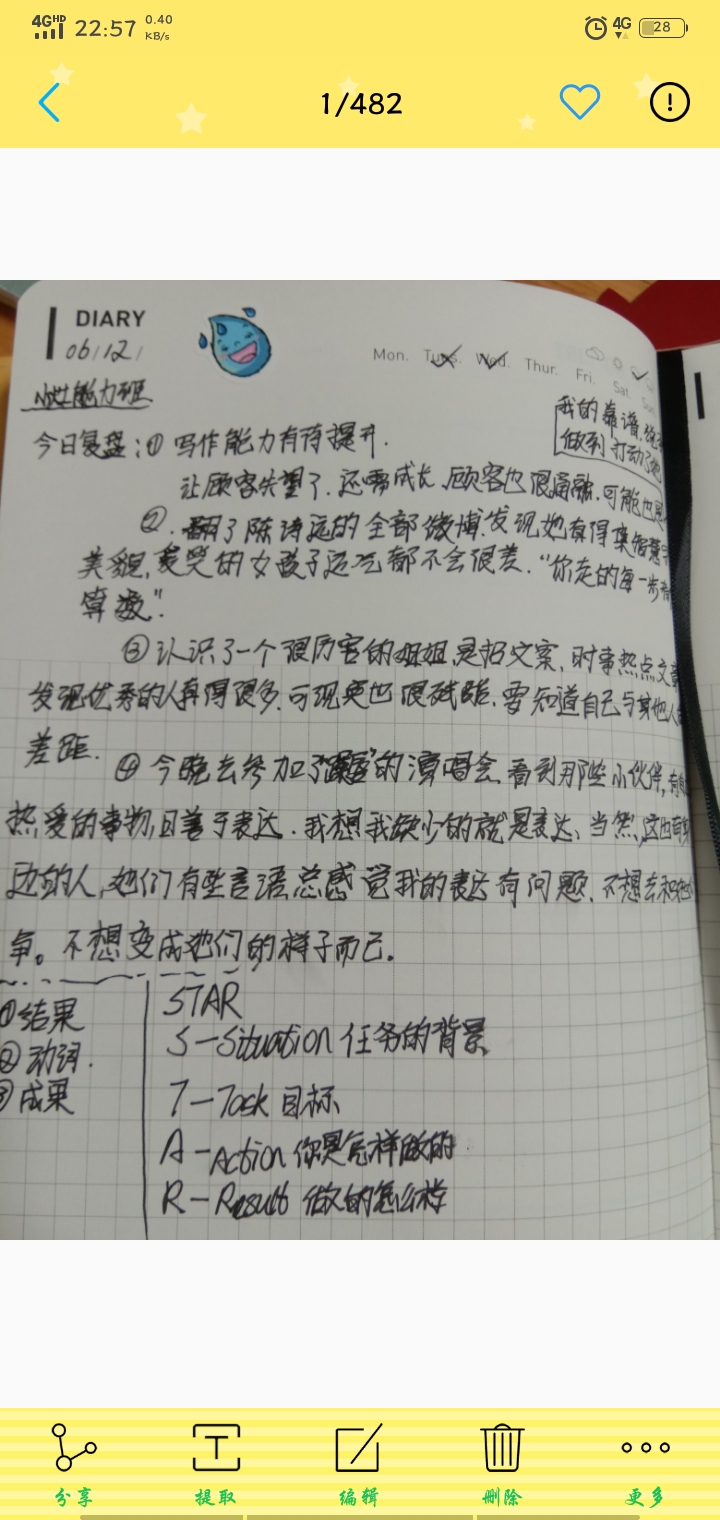 4G HD 22:57 0.40 KB/s 4G 28
1/482
DIARY
06/12/
Mon. Tues. Wed. Thur. Fri. Sat. Sun.
能力班
我的靠谱
做到 打动了她
今日复盘:① 写作能力有待提升.
让顾客失望了.还需成长.顾客也很通融.可能也是
②.翻了陈诗远的全部微博.发现她真得集智慧
美貌.爱笑的女孩子运气都不会很差.“你走的每一步都
算数”.
③认识了一个很厉害的姐姐.是招文案,时事热点文章
发现优秀的人真得很多.可现实也很残酷.要知道自己与其他人的
差距.
④今晚去参加了的演唱会.看到那些小伙伴,有
热爱的事物,且善于表达.我想我缺少的就是表达、当然,这也有身
边的人,她们有些言语总感觉我的表达有问题.不想去和她们
争。不想变成她们的样子而已.
①结果
②动词.
③成果
STAR
S-Situation 任务的背景
T-Task 目标
A-Action 你是怎样做的
R-Result 做的怎么样
分享 提取 编辑 删除 更多